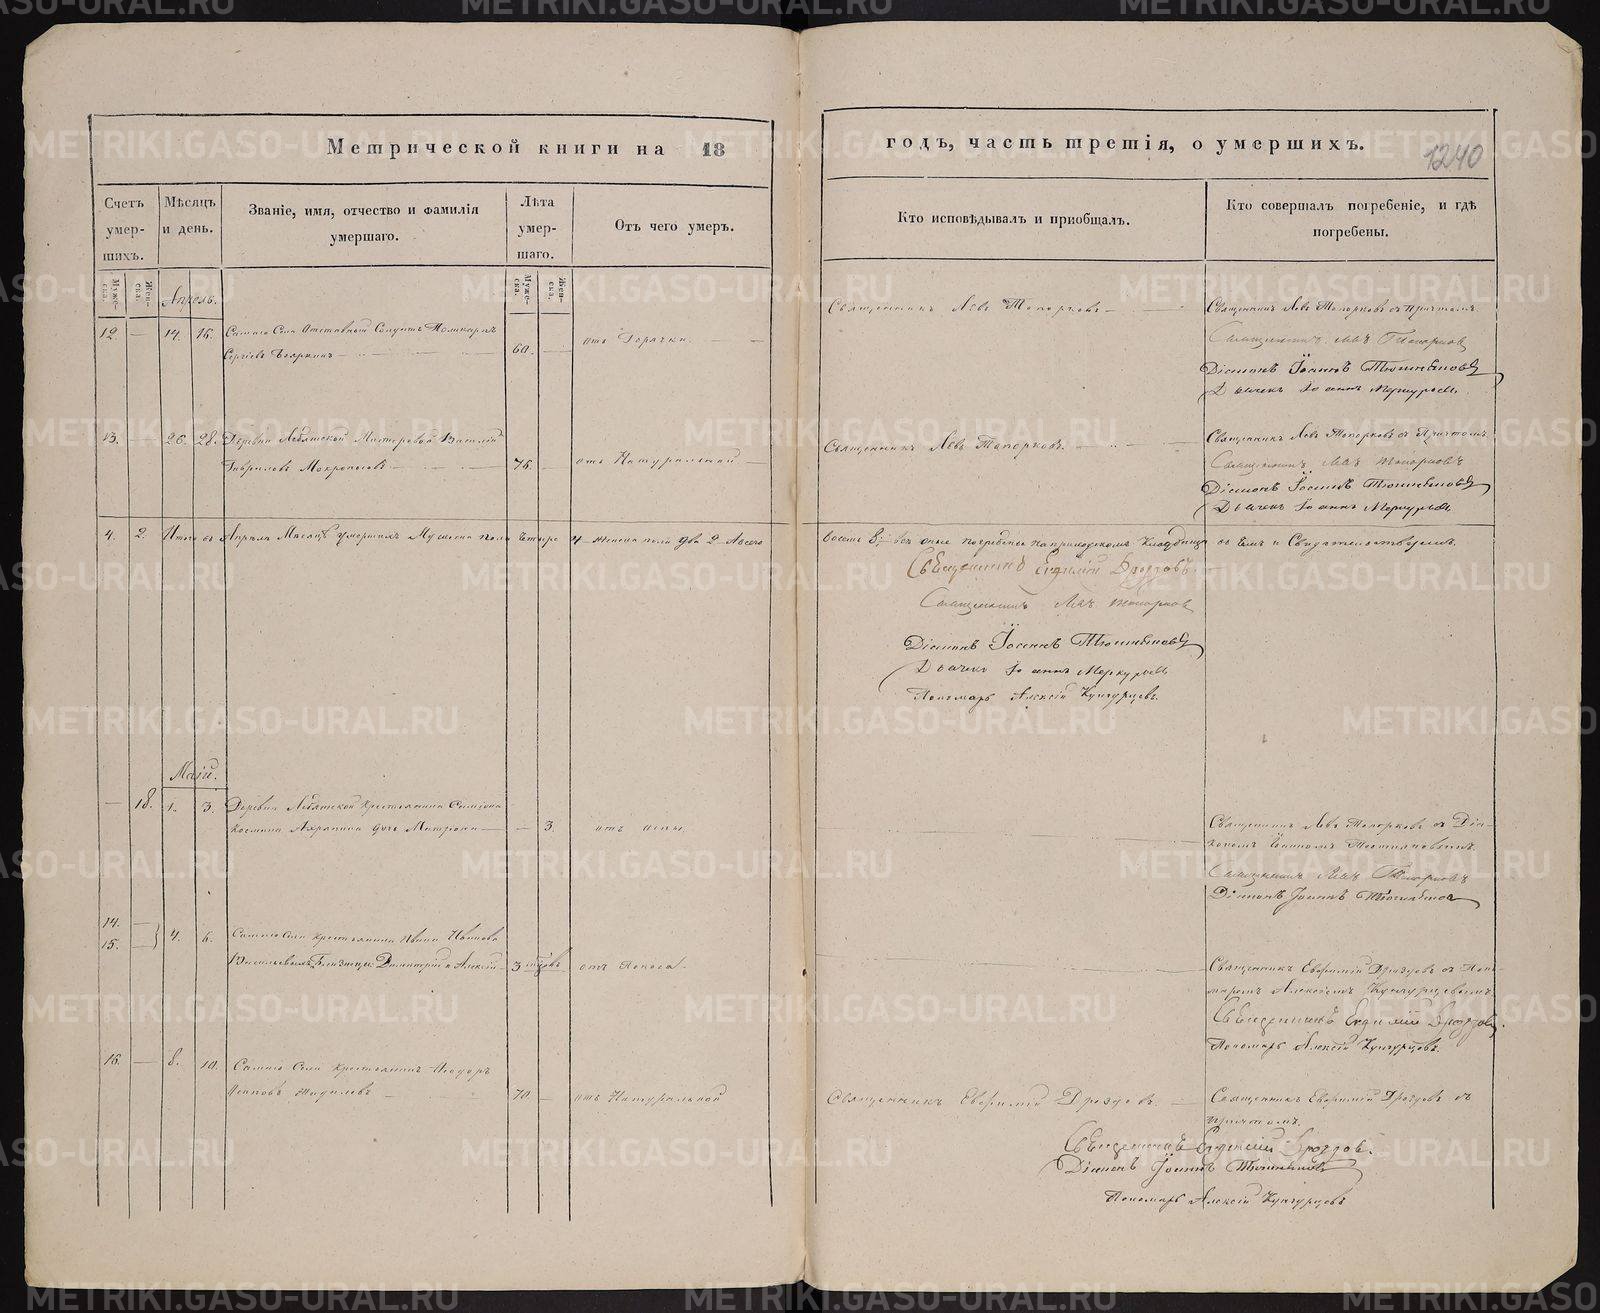 Метрической книги на 18
годъ, часть третія, о умершихъ.
1240
Счетъ умер-шихъ.
Мѣсяцъ и день.
Званіе, имя, отчество и фамилія
умершаго.
Лѣта умер-шаго.
Отъ чего умеръ.
Кто исповѣдывалъ и приобщалъ.
Кто совершалъ погребеніе, и гдѣ
погребены.
Муже-ска.
Жен-ска.
Муже-ска.
Жен-ска.
Апрѣль.
12. — 14. 16. Самаго Села Отставный Солдатъ Поликарпъ
Сергіевъ — 60. — отъ Горячки.
Священникъ Левъ Топорковъ —
Священникъ Левъ Топорковъ съ Причтомъ
Священникъ Левъ Топорковъ
Діаконъ Іоаннъ
Дьячекъ Іоаннъ Меркурьевъ
13. — 26. 28. Деревни Мастеровой Василій
Гавриловъ Мокроносовъ — 76. — отъ Натуральной —
Священникъ Левъ Топорковъ. —
Священникъ Левъ Топорковъ съ Причтомъ
Священникъ Левъ Топорковъ
Діаконъ Іоаннъ
Дьячекъ Іоаннъ Меркурьевъ
4. 2. Итого въ Апрѣлѣ Мѣсяцѣ умершихъ Мужеска пола Четыре 4 Женска пола два 2 А всего
погребены на приходскомъ Кладбище въ Чемъ и Свидетельствуемъ.
Священникъ Евфимій Дроздовъ
Священникъ Левъ Топорковъ
Діаконъ Іоаннъ
Дьячекъ Іоаннъ Меркурьевъ
Пономарь Алексій Кунгурцевъ.
Маій.
— 18. 1. 3. Деревни Крестьянина Симеона
Космина дочь Матрона — — 3. отъ оспы
Священникъ Левъ Топорковъ съ Діа-
кономъ Іоанномъ
Священникъ Левъ Топорковъ
Діаконъ Іоаннъ
14. —
15. — 4. 6. Самаго Села Крестьянина Ивана Иванова
Васильевыхъ Близнецы Димитрій и Алексій — 3 отъ Поноса.
Священникъ Евфимій Дроздовъ съ Поно-
маремъ Алексіемъ Кунгурцевымъ.
Священникъ Евфимій Дроздовъ
Пономарь Алексій Кунгурцевъ.
16. — 8. 10. Самаго Села Крестьянинъ Феодоръ
Осиповъ — 70 — отъ Натуральной
Священникъ Евфимій Дроздовъ. —
Священникъ Евфимій Дроздовъ съ
причтомъ.
Священникъ Евфимій Дроздовъ.
Діаконъ Іоаннъ
Пономарь Алексій Кунгурцевъ
METRIKI.GASO-URAL.RU